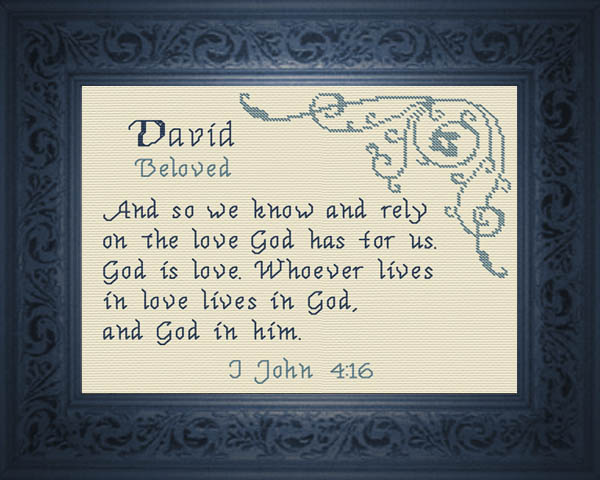 David
Beloved
And so we know and rely
on the love God has for us.
God is love. Whoever lives
in love lives in God,
and God in him.
I John 4:16